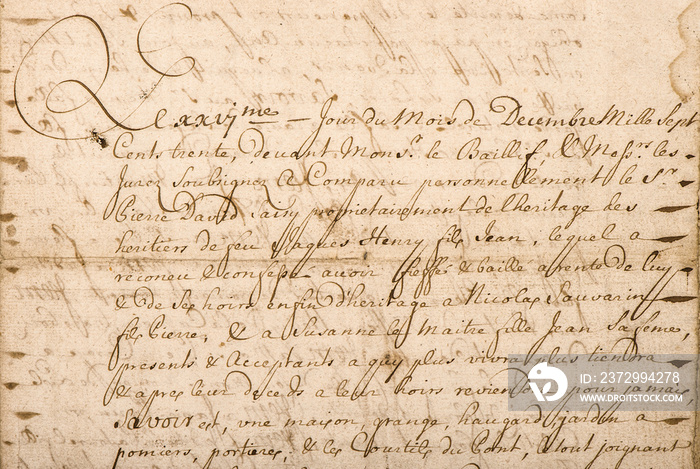 Le xxvjme Jour du Mois de Decembre Mille Sept
Cents trente, devant Monsr. le Baillif, & Messrs. les
Jurez Soubsignez Est Comparu personnellement le Sr.
Pierre David saisy proprietairement de l'heritage des
heritiers de feu Jaques Henry fils Jean, lequel a
reconeu & confessé avoir fieffé & baillé a rente de luy
& de Ses hoirs enfin d'heritage a Nicolas Sauvarin
fils Pierre, & a Susanne le Maitre fille Jean Sa feme,
presents & Acceptants a quy plus vivra plus tiendra
& apres leur deceds a leur hoirs pour jamais
Savoir est, vne maison, grange, haugard, jardin a
pomiers, portieres, & les Courtils du Pont, le tout joignant
ID 2372994278
WWW.DROITSTOCK.COM